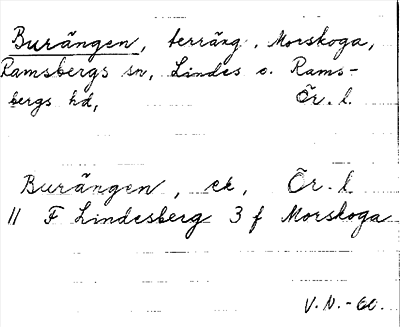 Burängen, terräng, Morskoga,
Ramsbergs sn, Lindes o. Rams-
bergs hd, Ör. l.
Burängen, ek, Ör. l.
11 F Lindesberg 3 f Morskoga
V.N.-60.